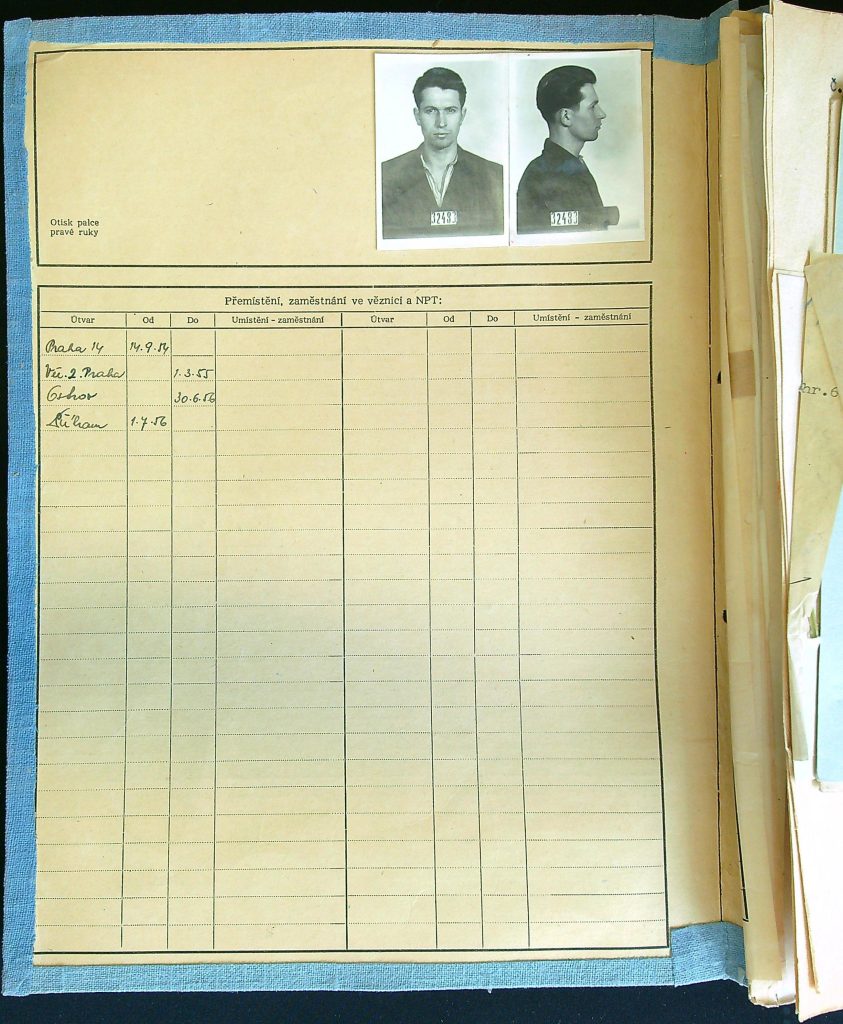 Otisk palce
pravé ruky
3249
3249
Přemístění, zaměstnání ve věznici a NPT:
Útvar Od Do Umístění - zaměstnání Útvar Od Do Umístění - zaměstnání
Praha 14 14.9.54
Věz. 2. Praha 1.3.55
Ostrov 30.6.56
1.7.56
nr.6